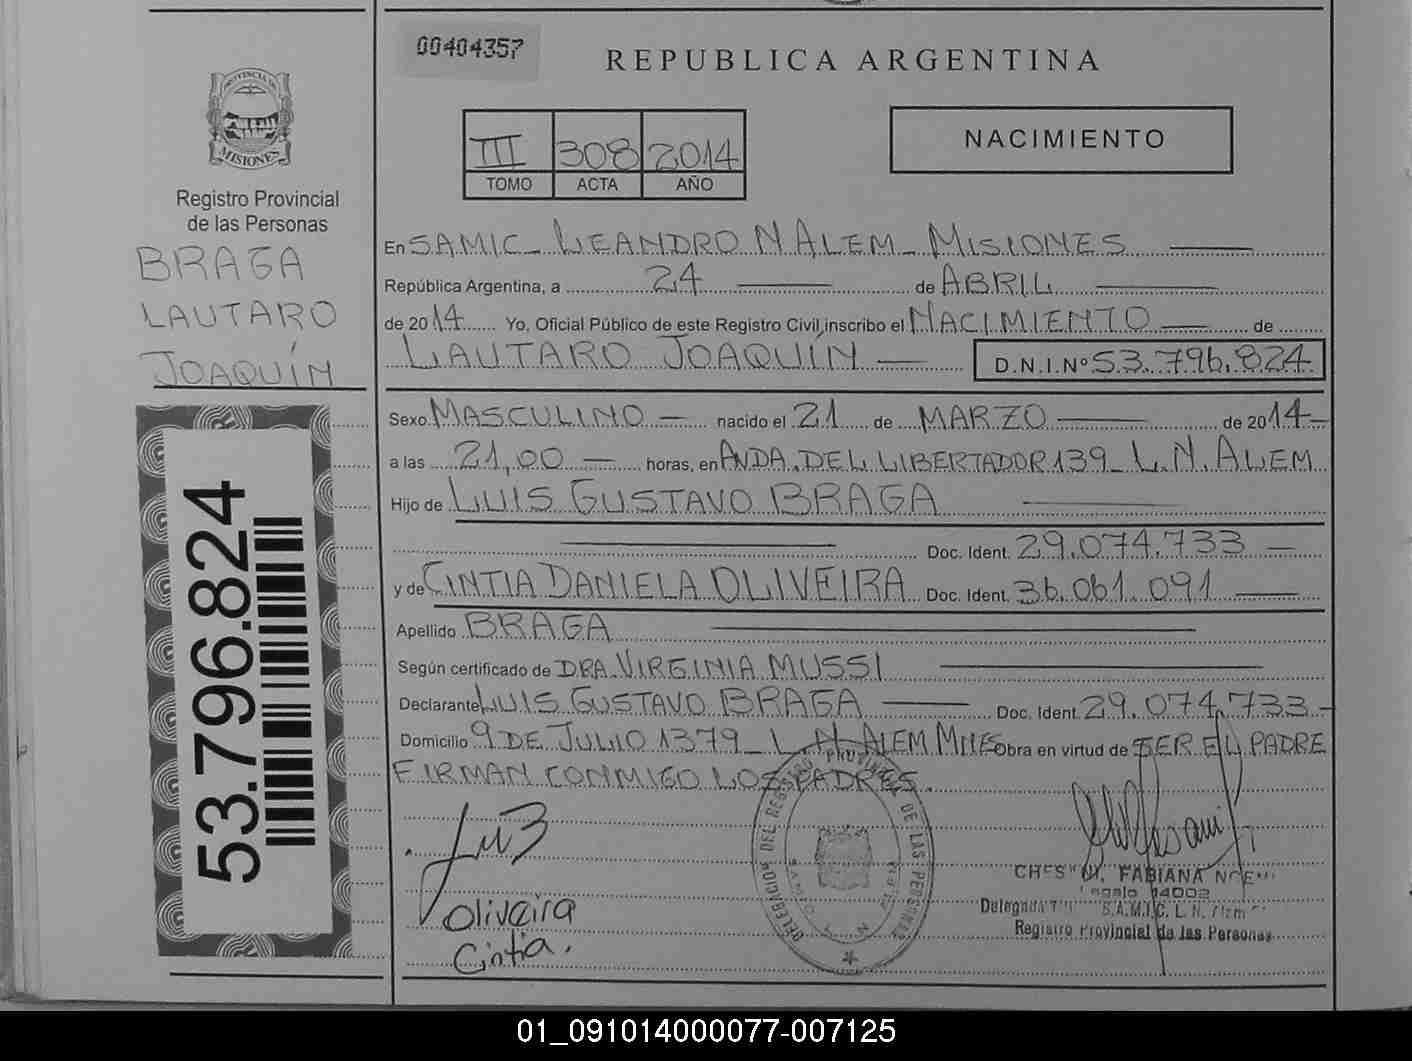 00404357
REPUBLICA ARGENTINA
PROVINCIA DE
MISIONES
Registro Provincial
de las Personas
BRAGA
LAUTARO
JOAQUÍN
III 308 2014
TOMO ACTA AÑO
NACIMIENTO
En SAMIC_ LEANDRO N ALEM_ MISIONES
República Argentina, a 24 de ABRIL
de 2014 Yo, Oficial Público de este Registro Civil, inscribo el NACIMIENTO de
LAUTARO JOAQUÍN D.N.I. Nº 53.796.824
Sexo MASCULINO nacido el 21 de MARZO de 2014
a las 21,00 horas, en AVDA. DEL LIBERTADOR 139_ L.N. ALEM
Hijo de LUIS GUSTAVO BRAGA
Doc. Ident. 29.074.733
y de CINTIA DANIELA OLIVEIRA Doc. Ident. 36.061.091
Apellido BRAGA
Según certificado de DRA. VIRGINIA MUSSI
Declarante LUIS GUSTAVO BRAGA Doc. Ident. 29.074.733
Domicilio 9 DE JULIO 1379_ L.N. ALEM MNES Obra en virtud de SER EL PADRE
FIRMAN CONMIGO LOS PADRES.
53.796.824
Oliveira
Cintia.
DELEGACION DEL REGISTRO PROVINCIAL DE LAS PERSONAS
FABIANA
S.A.M.I.C. L. N.
Registro Provincial de las Personas
01_091014000077-007125